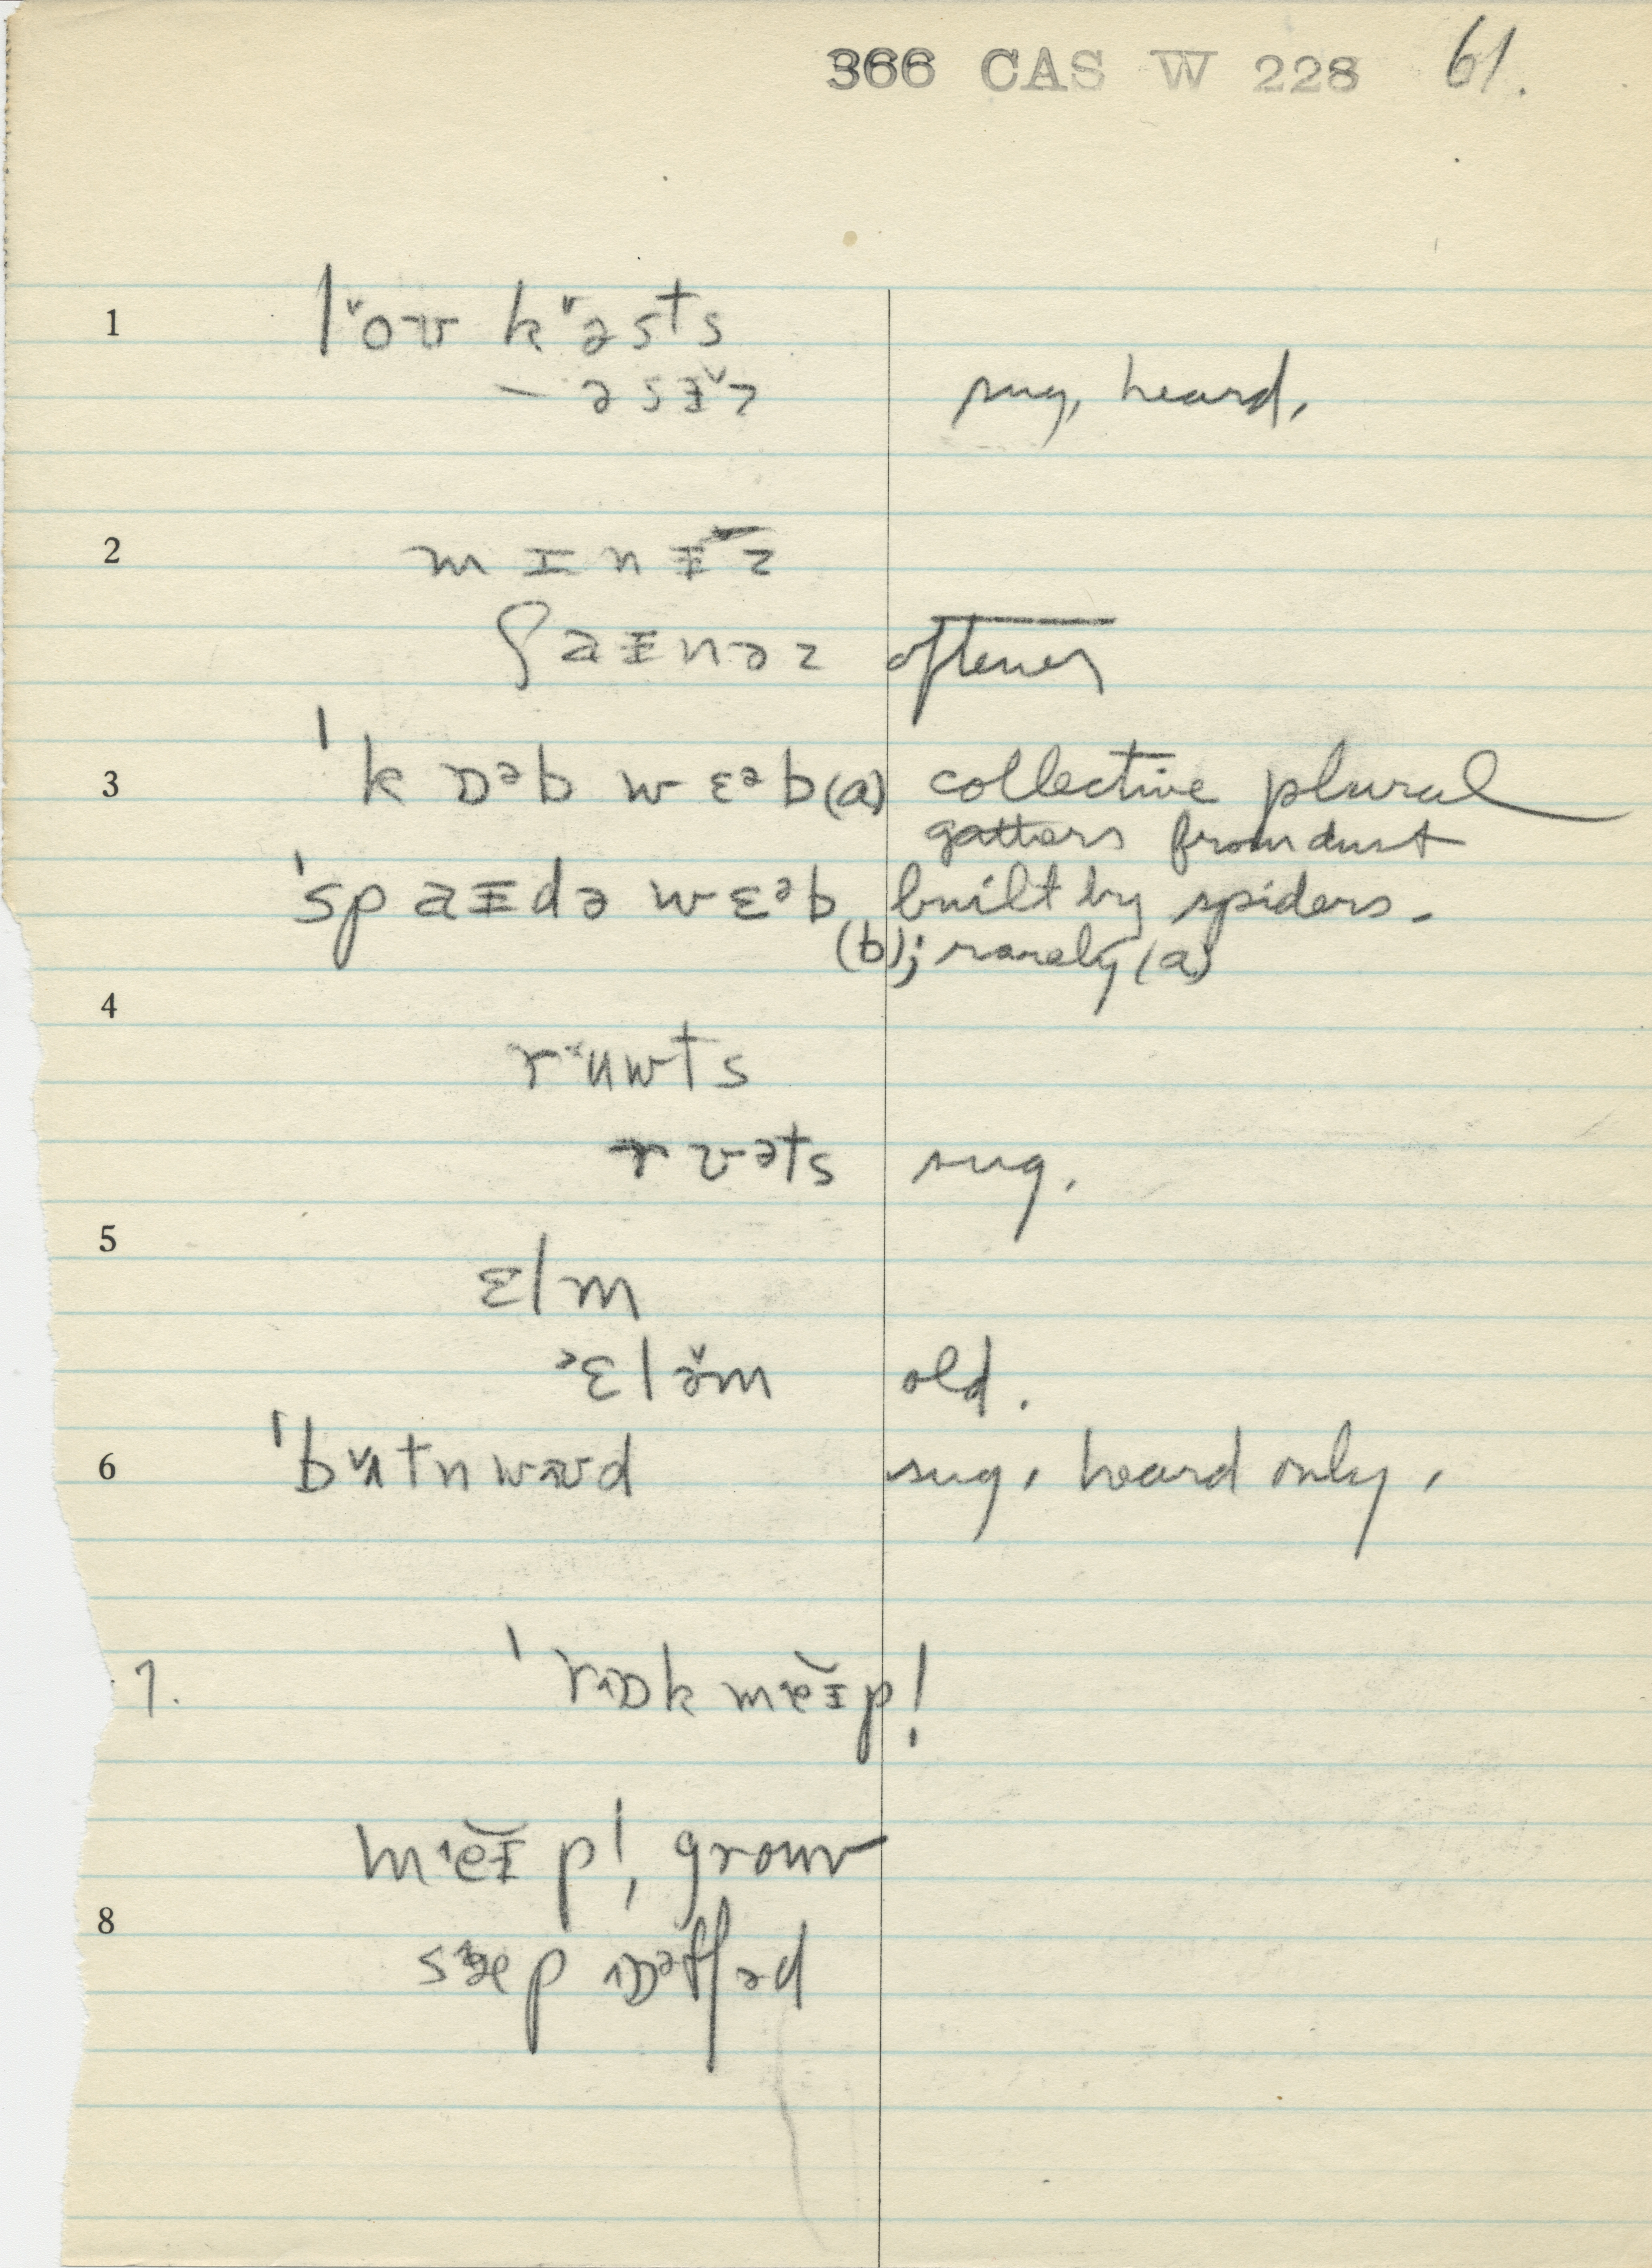 366 CAS W 228 61.
1 l˅oʊ k˅əsts
– əsɪ̵˅z sug. heard.
2 m ɪ n ɪ̵ z
ʃ a ɪ̵ n ə z oftener
3 ˈk ɒᵊb w ɛᵊb (a) collective plural
gathers from dust
ˈsp a ɪ̵ d ə w ɛᵊb built by spiders.
(b); rarely (a)
4
r ʉ w t s
r ʊ ə t s sug.
5
ɛ l m
ᵊɛ l ə̌ m old.
6 ˈb ʌ˅ t n w ʊ d sug. heard only.
7. ˈr ɒ k m e ɪ̵ p!
m e ɪ̵ p!, grow
8
s æ p ɒᵊf ə d